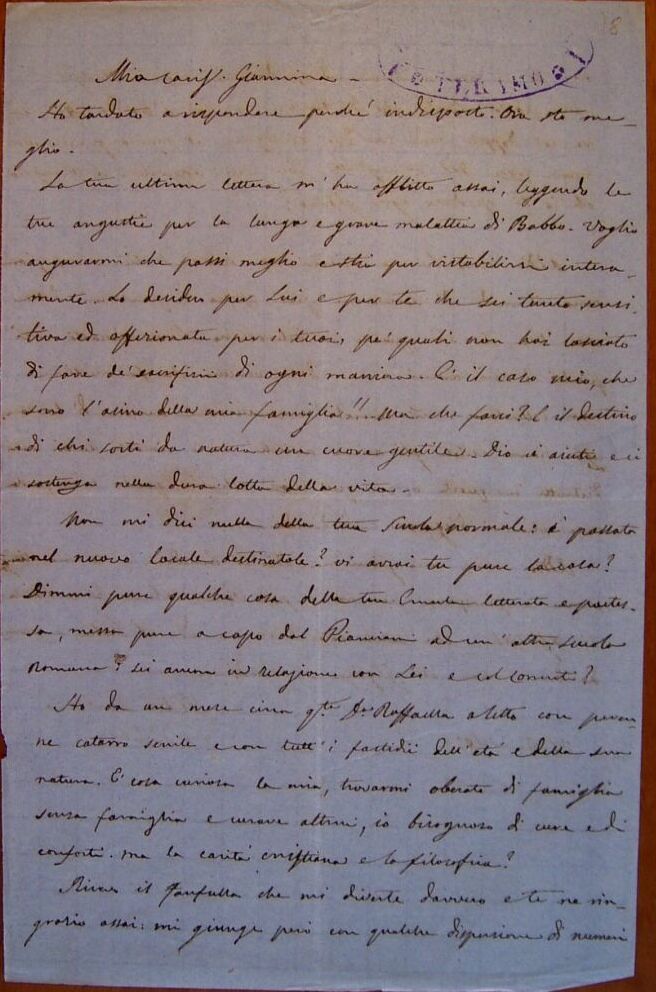 8
TERAMO
Mia cariss. Giannina -
Ho tardato a rispondere perché indisposto. Ora sto me-
glio.
La tua ultima lettera m'ha afflitto assai, leggendo le
tue angustie per la lunga e grave malattia di Babbo. Voglio
augurarmi che passi meglio e stia per ristabilirsi intera-
mente. Lo desidero per Lui e per te che sei tanto sensi-
tiva ed affezionata per i tuoi, pe' quali non hai lasciato
di fare de' sacrifizi di ogni maniera. È il caso mio, che
sono l'asino della mia famiglia!! Ma che farci? È il destino
di chi sortì da natura un cuore gentile. Dio ci aiuti e ci
sostenga nella dura lotta della vita.
Non mi dici nulla della tua Scuola normale: è passata
nel nuovo locale destinatole? vi avrai tu pure la casa?
Dimmi pure qualche cosa della tua letterata e poetes-
sa, messa pure a capo dal Pianciani ad un'altra scuola
Romana? sei ancora in relazione con Lei e col ?
Ho da un mese circa qta Da Raffaella a letto con
ne catarro senile e con tutt'i fastidii dell'età e della sua
natura. È cosa curiosa la mia, trovarmi oberato di famiglia
senza famiglia e curare altrui, io bisognoso di cure e di
conforti. Ma la carità cristiana e la filosofia?
il Fanfulla che mi diverte davvero e te ne rin-
grazio assai: mi giunge però con qualche dispersione di numeri